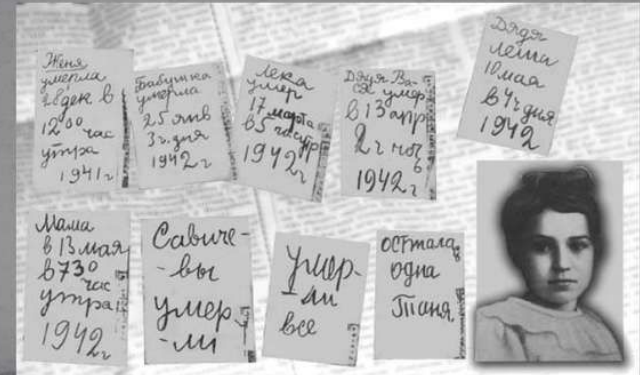 Женя
умерла
28 дек в
12 00 час
утра
1941 г
Бабушка
умерла
25 янв
3 ч. дня
1942 г
Лека
умер
17 марта
в 5 часутр
1942 г
Дядя Ва-
ся умер
в 13 апр
2 ч ноч
в
1942 г
Дядя
Леша
10 мая
в 4 ч дня
1942
Мама
в 13 мая
в 7 30
час
утра
1942 г
Савиче-
-вы
умер-
-ли
умер-
-ли
все
осттала
одна
Таня